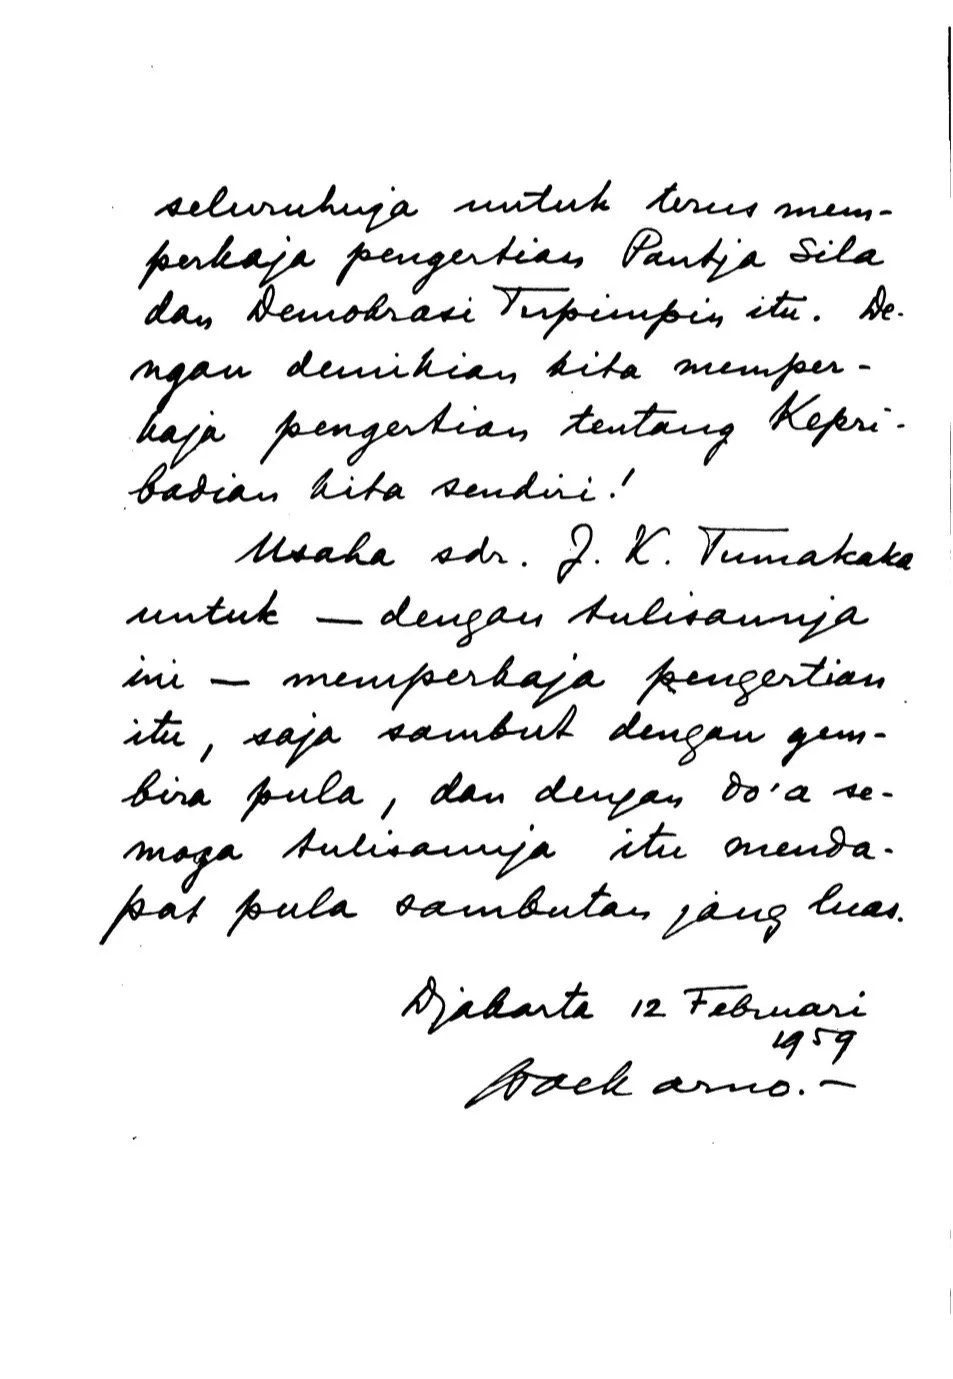 seluruhnja untuk terus mem-
perkaja pengertian Pantja Sila
dan Demokrasi Terpimpin itu. De-
ngan demikian kita memper-
kaja pengertian tentang Kepri-
badian kita sendiri!
Usaha sdr. J. K. Tumakaka
untuk — dengan tulisannja
ini — memperkaja pengertian
itu, saja sambut dengan gem-
bira pula, dan dengan do'a se-
moga tulisannja itu menda-
pat pula sambutan jang luas.
Djakarta 12 Februari
1959
Soekarno.—